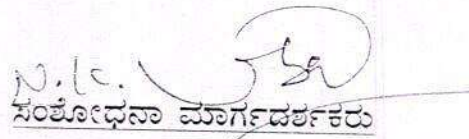 N.K.
ಸಂಶೋಧನಾ ಮಾರ್ಗದರ್ಶಕರು